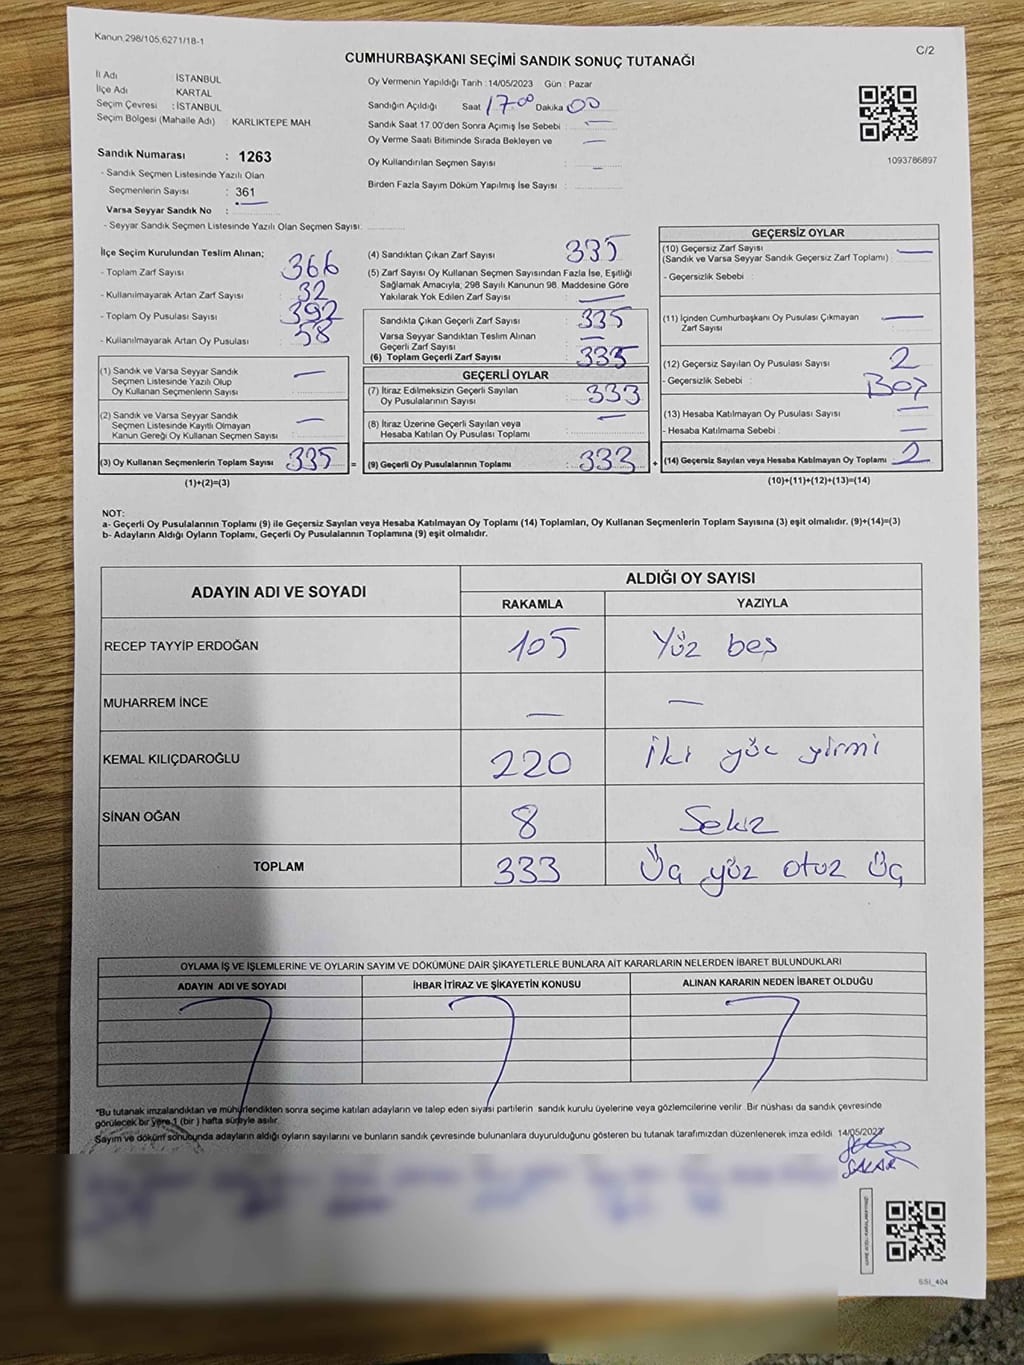 Kanun,298/105,6271/18-1
C/2
CUMHURBAŞKANI SEÇİMİ SANDIK SONUÇ TUTANAĞI
İl Adı İSTANBUL
İlçe Adı KARTAL
Seçim Çevresi : İSTANBUL
Seçim Bölgesi (Mahalle Adı) : KARLIKTEPE MAH
Sandık Numarası : 1263
- Sandık Seçmen Listesinde Yazılı Olan
Seçmenlerin Sayısı : 361
Varsa Seyyar Sandık No :
- Seyyar Sandık Listesinde Yazılı Olan Seçmen Sayısı:
Oy Vermenin Yapıldığı Tarih : 14/05/2023 Gün : Pazar
Sandığın Açıldığı Saat 17 00 Dakika 00
Sandık Saat 17.00'den Sonra Açımış İse Sebebi : —
Oy Verme Saati Bitiminde Sırada Bekleyen ve —
Oy Kullandırılan Seçmen Sayısı : —
Birden Fazla Sayım Döküm Yapılmış İse Sayısı :
1093786897
İlçe Seçim Kurulundan Teslim Alınan;
- Toplam Zarf Sayısı : 366
- Kullanılmayarak Artan Zarf Sayısı : 32
- Toplam Oy Pusulası Sayısı : 392
- Kullanılmayarak Artan Oy Pusulası : 58
(1) Sandık ve Varsa Seyyar Sandık
Seçmen Listesinde Yazılı Olup
Oy Kullanan Seçmenlerin Sayısı : —
(2) Sandık ve Varsa Seyyar Sandık
Seçmen Listesinde Kayıtlı Olmayan
Kanun Gereği Oy Kullanan Seçmen Sayısı : —
(3) Oy Kullanan Seçmenlerin Toplam Sayısı : 335 =
(1)+(2)=(3)
(4) Sandıktan Çıkan Zarf Sayısı : 335
(5) Zarf Sayısı Oy Kullanan Seçmen Sayısından Fazla İse, Eşitliği
Sağlamak Amacıyla, 298 Sayılı Kanunun 98. Maddesine Göre
Yakılarak Yok Edilen Zarf Sayısı : —
Sandıkta Çıkan Geçerli Zarf Sayısı : 335
Varsa Seyyar Sandıktan Teslim Alınan
Geçerli Zarf Sayısı : —
(6) Toplam Geçerli Zarf Sayısı : 335
GEÇERLİ OYLAR
(7) İtiraz Edilmeksizin Geçerli Sayılan
Oy Pusulalarının Sayısı : 333
(8) İtiraz Üzerine Geçerli Sayılan veya
Hesaba Katılan Oy Pusulası Toplamı : —
(9) Geçerli Oy Pusulalarının Toplamı : 333 +
GEÇERSİZ OYLAR
(10) Geçersiz Zarf Sayısı
(Sandık ve Varsa Seyyar Sandık Geçersiz Zarf Toplamı) : —
- Geçersizlik Sebebi :
(11) İçinden Cumhurbaşkanı Oy Pusulası Çıkmayan
Zarf Sayısı : —
(12) Geçersiz Sayılan Oy Pusulası Sayısı : 2
- Geçersizlik Sebebi : Boş
(13) Hesaba Katılmayan Oy Pusulası Sayısı : —
- Hesaba Katılmama Sebebi : —
(14) Geçersiz Sayılan veya Hesaba Katılmayan Oy Toplamı : 2
(10)+(11)+(12)+(13)=(14)
NOT:
a- Geçerli Oy Pusulalarının Toplamı (9) ile Geçersiz Sayılan veya Hesaba Katılmayan Oy Toplamı (14) Toplamları, Oy Kullanan Seçmenlerin Toplam Sayısına (3) eşit olmalıdır. (9)+(14)=(3)
b- Adayların Aldığı Oyların Toplamı, Geçerli Oy Pusulalarının Toplamına (9) eşit olmalıdır.
ADAYIN ADI VE SOYADI ALDIĞI OY SAYISI
RAKAMLA YAZIYLA
RECEP TAYYİP ERDOĞAN 105 Yüz beş
MUHARREM İNCE — —
KEMAL KILIÇDAROĞLU 220 İki yüz yirmi
SİNAN OĞAN 8 Sekiz
TOPLAM 333 Üç yüz otuz üç
OYLAMA İŞ VE İŞLEMLERİNE VE OYLARIN SAYIM VE DÖKÜMÜNE DAİR ŞİKAYETLERLE BUNLARA AİT KARARLARIN NELERDEN İBARET BULUNDUKLARI
ADAYIN ADI VE SOYADI İHBAR İTİRAZ VE ŞİKAYETİN KONUSU ALINAN KARARIN NEDEN İBARET OLDUĞU
*Bu tutanak imzalandıktan ve mühürlendikten sonra seçime katılan adayların ve talep eden siyasi partilerin sandık kurulu üyelerine veya gözlemcilerine verilir .Bir nüshası da sandık çevresinde
görülecek bir yere 1 (bir ) hafta süreyle asılır.
Sayım ve döküm sonucunda adayların aldığı oyların sayılarını ve bunların sandık çevresinde bulunanlara duyurulduğunu gösteren bu tutanak tarafımızdan düzenlenerek imza edildi. 14/05/2023
SSI_404